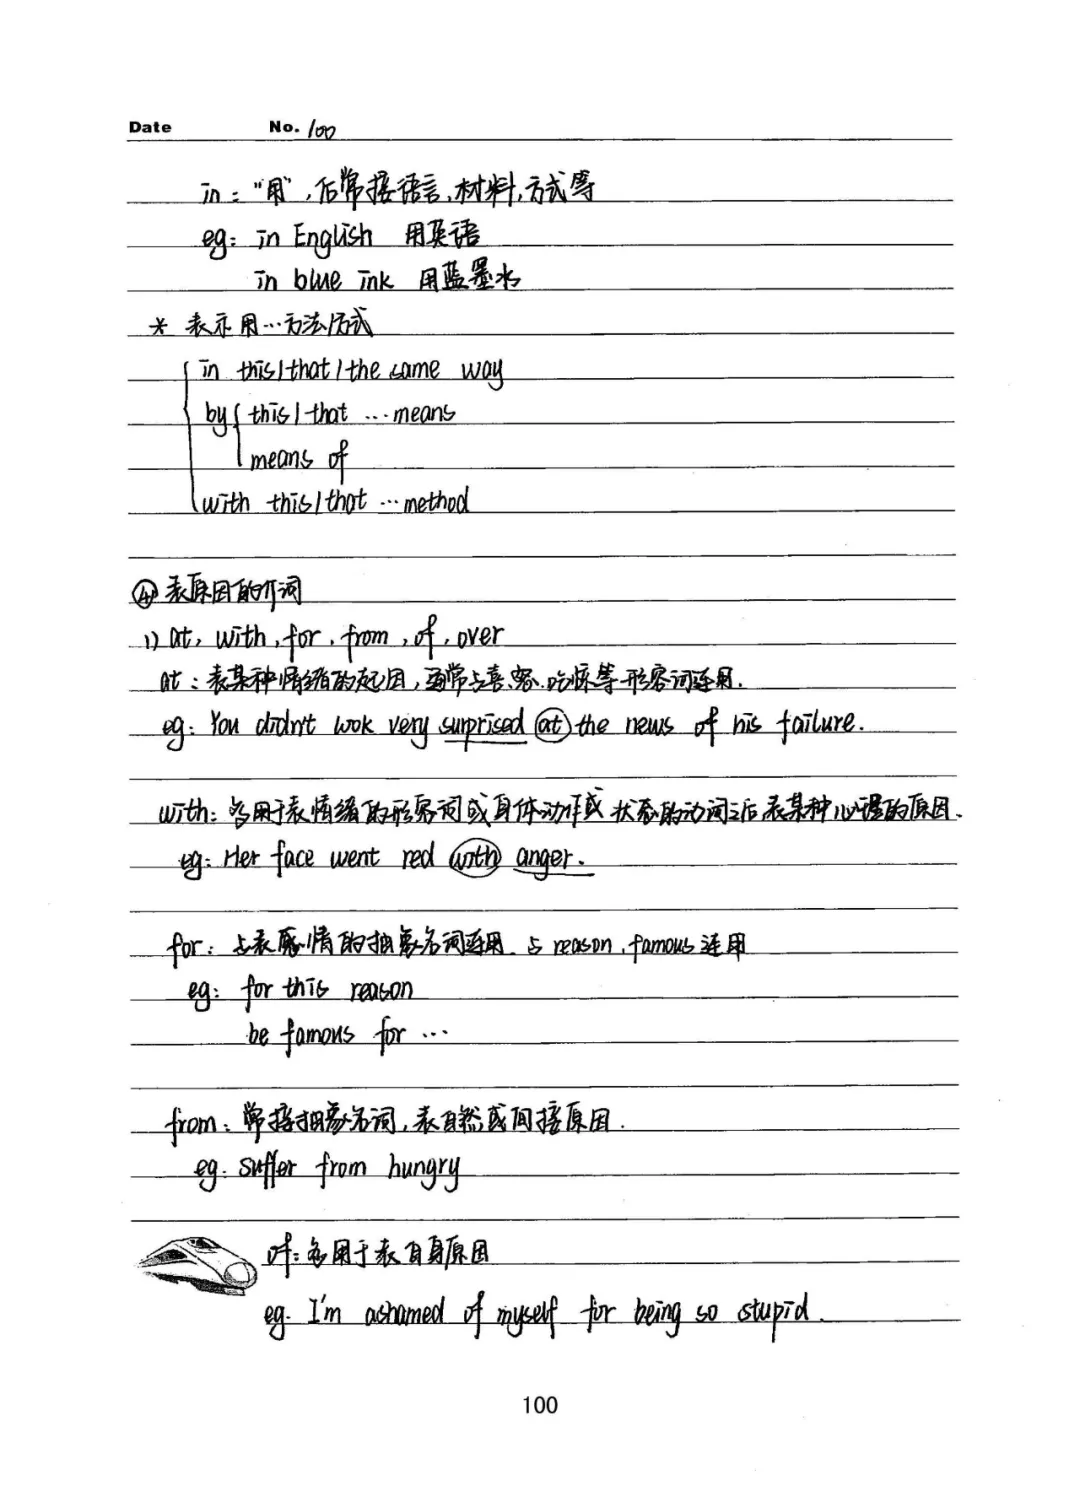 Date No. 100
in："用"，后常接语言，材料，方式等
eg: in English 用英语
in blue ink 用蓝墨水
* 表示用…方法/方式
in this/that/the same way
by this/that ... means
means of
with this/that ... method
④ 表原因的介词
1) at, with, for, from, of, over
at：表某种情绪的起因，通常与喜、怒、吃惊等形容词连用.
eg: You didn't wok very surprised at the news of his failure.
with：多用于表情绪的形容词或身体动作或状态的动词之后表某种心理的原因.
eg: Her face went red with anger.
for：与表感情的抽象名词连用. 与 reason, famous 连用
eg: for this reason
be famous for ...
from：常接抽象名词，表自然或间接原因.
eg. suffer from hungry
of：多用于表自身原因
eg. I'm ashamed of myself for being so stupid.
100